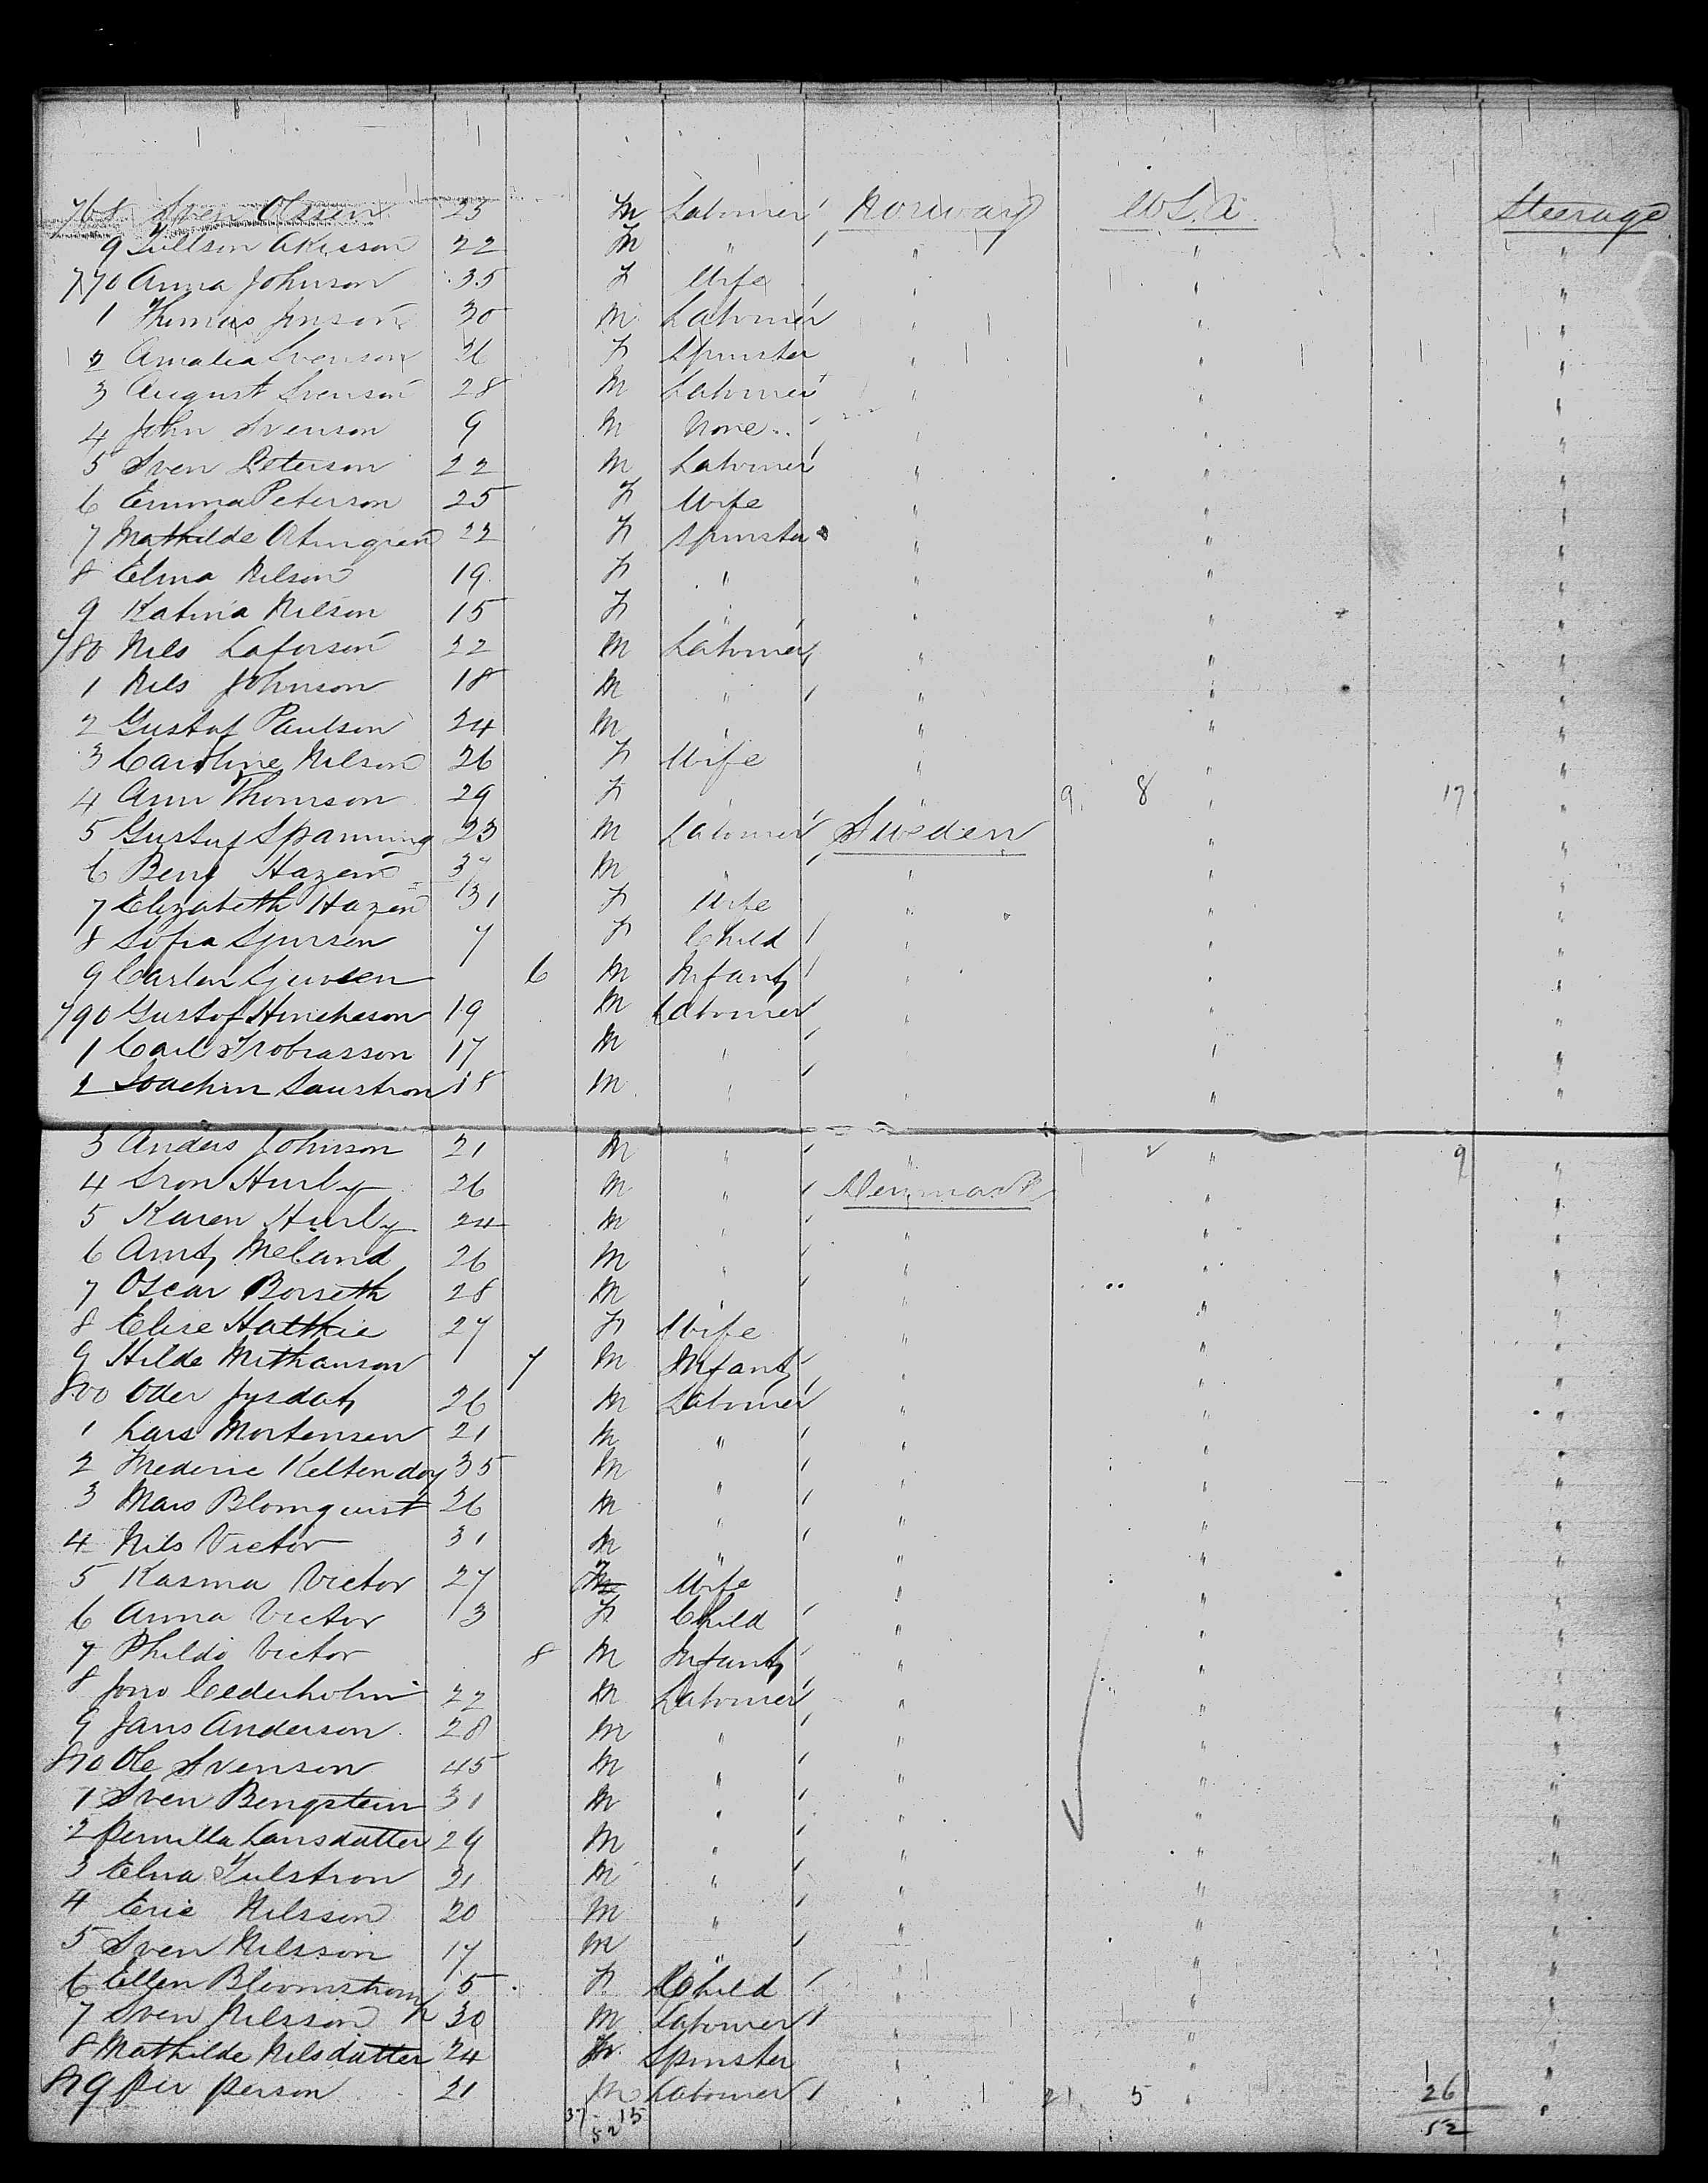 768 Sven Olssen 25 M Labourer Norway U.S.A. Steerage
9 22 M " " " "
770 Anna Johnson 35 F Wife " " "
1 Thomas Jonson 30 M Labourer " " "
2 Amalia Svenson 36 F Spinster " " "
3 August Svenson 28 M Labourer " " "
4 John Svenson 9 M None " " "
5 Sven Peterson 22 M Labourer " " "
6 Emma Peterson 25 F Wife " " "
7 Mathilde 22 F Spinster " " "
8 Elma Nilson 19 F " " " "
9 Katina Nilson 15 F " " " "
780 Nils Laforson 22 M Labourer " " "
1 Nils Johnson 18 M " " " "
2 Gustaf Paulson 24 M " " " "
3 Caroline Nilson 26 F Wife " " "
4 Ann Thomson 29 F " " 9 8 " 17 "
5 Gustaf Spanning 23 M Labourer Sweden " "
6 Beng Hazen 37 M " " " "
7 Elizabeth Hazen 31 F Wife " " "
8 Sofia Sjursen 7 F Child " " "
9 Carlen 6 M Infant " " "
790 Gustof Hincheson 19 M Labourer " " "
1 Carl Trobiasson 17 M " " " "
2 Joachim Saustron 18 M " " " "
3 Anders Johnson 21 M " " " 9 "
4 Sron Hurly 26 M " Denmark " "
5 Karen Hurly 24 M " " " "
6 Arnt Meland 26 M " " " "
7 Oscar Borseth 28 M " " " "
8 Elise Hatthie 27 F Wife " " "
9 Hilde Mithanson 7 M Infant " " "
800 Oder Jysdat 26 M Labourer " " "
1 Lars Mortensen 21 M " " " "
2 Frederic Keltendoy 35 M " " " "
3 Mars Blomquist 26 M " " " "
4 Nils Victor 31 M " " " "
5 Kasma Victor 27 F Wife " " "
6 Anna Victor 3 F Child " " "
7 Phildo Victor 8 M Infant " " "
8 Jons Cederholm 22 M Labourer " " "
9 Jans Anderson 28 M " " " "
810 Ole Svenson 45 M " " " "
1 Sven Bengstein 31 M " " " "
2 Pernilla Larsdatter 29 M " " " "
3 Elna Tulstron 21 M " " " "
4 Eric Nilsson 20 M " " " "
5 Sven Nilsson 17 M " " " "
6 Ellen Bloomstrom 5 F Child " " "
7 Sven Nilsson 30 M Labourer " " "
8 Mathilde Nilsdatter 24 F Spinster " " "
819 Per Person 21 M Labourer " 21 5 " 26 "
37 15
52 52